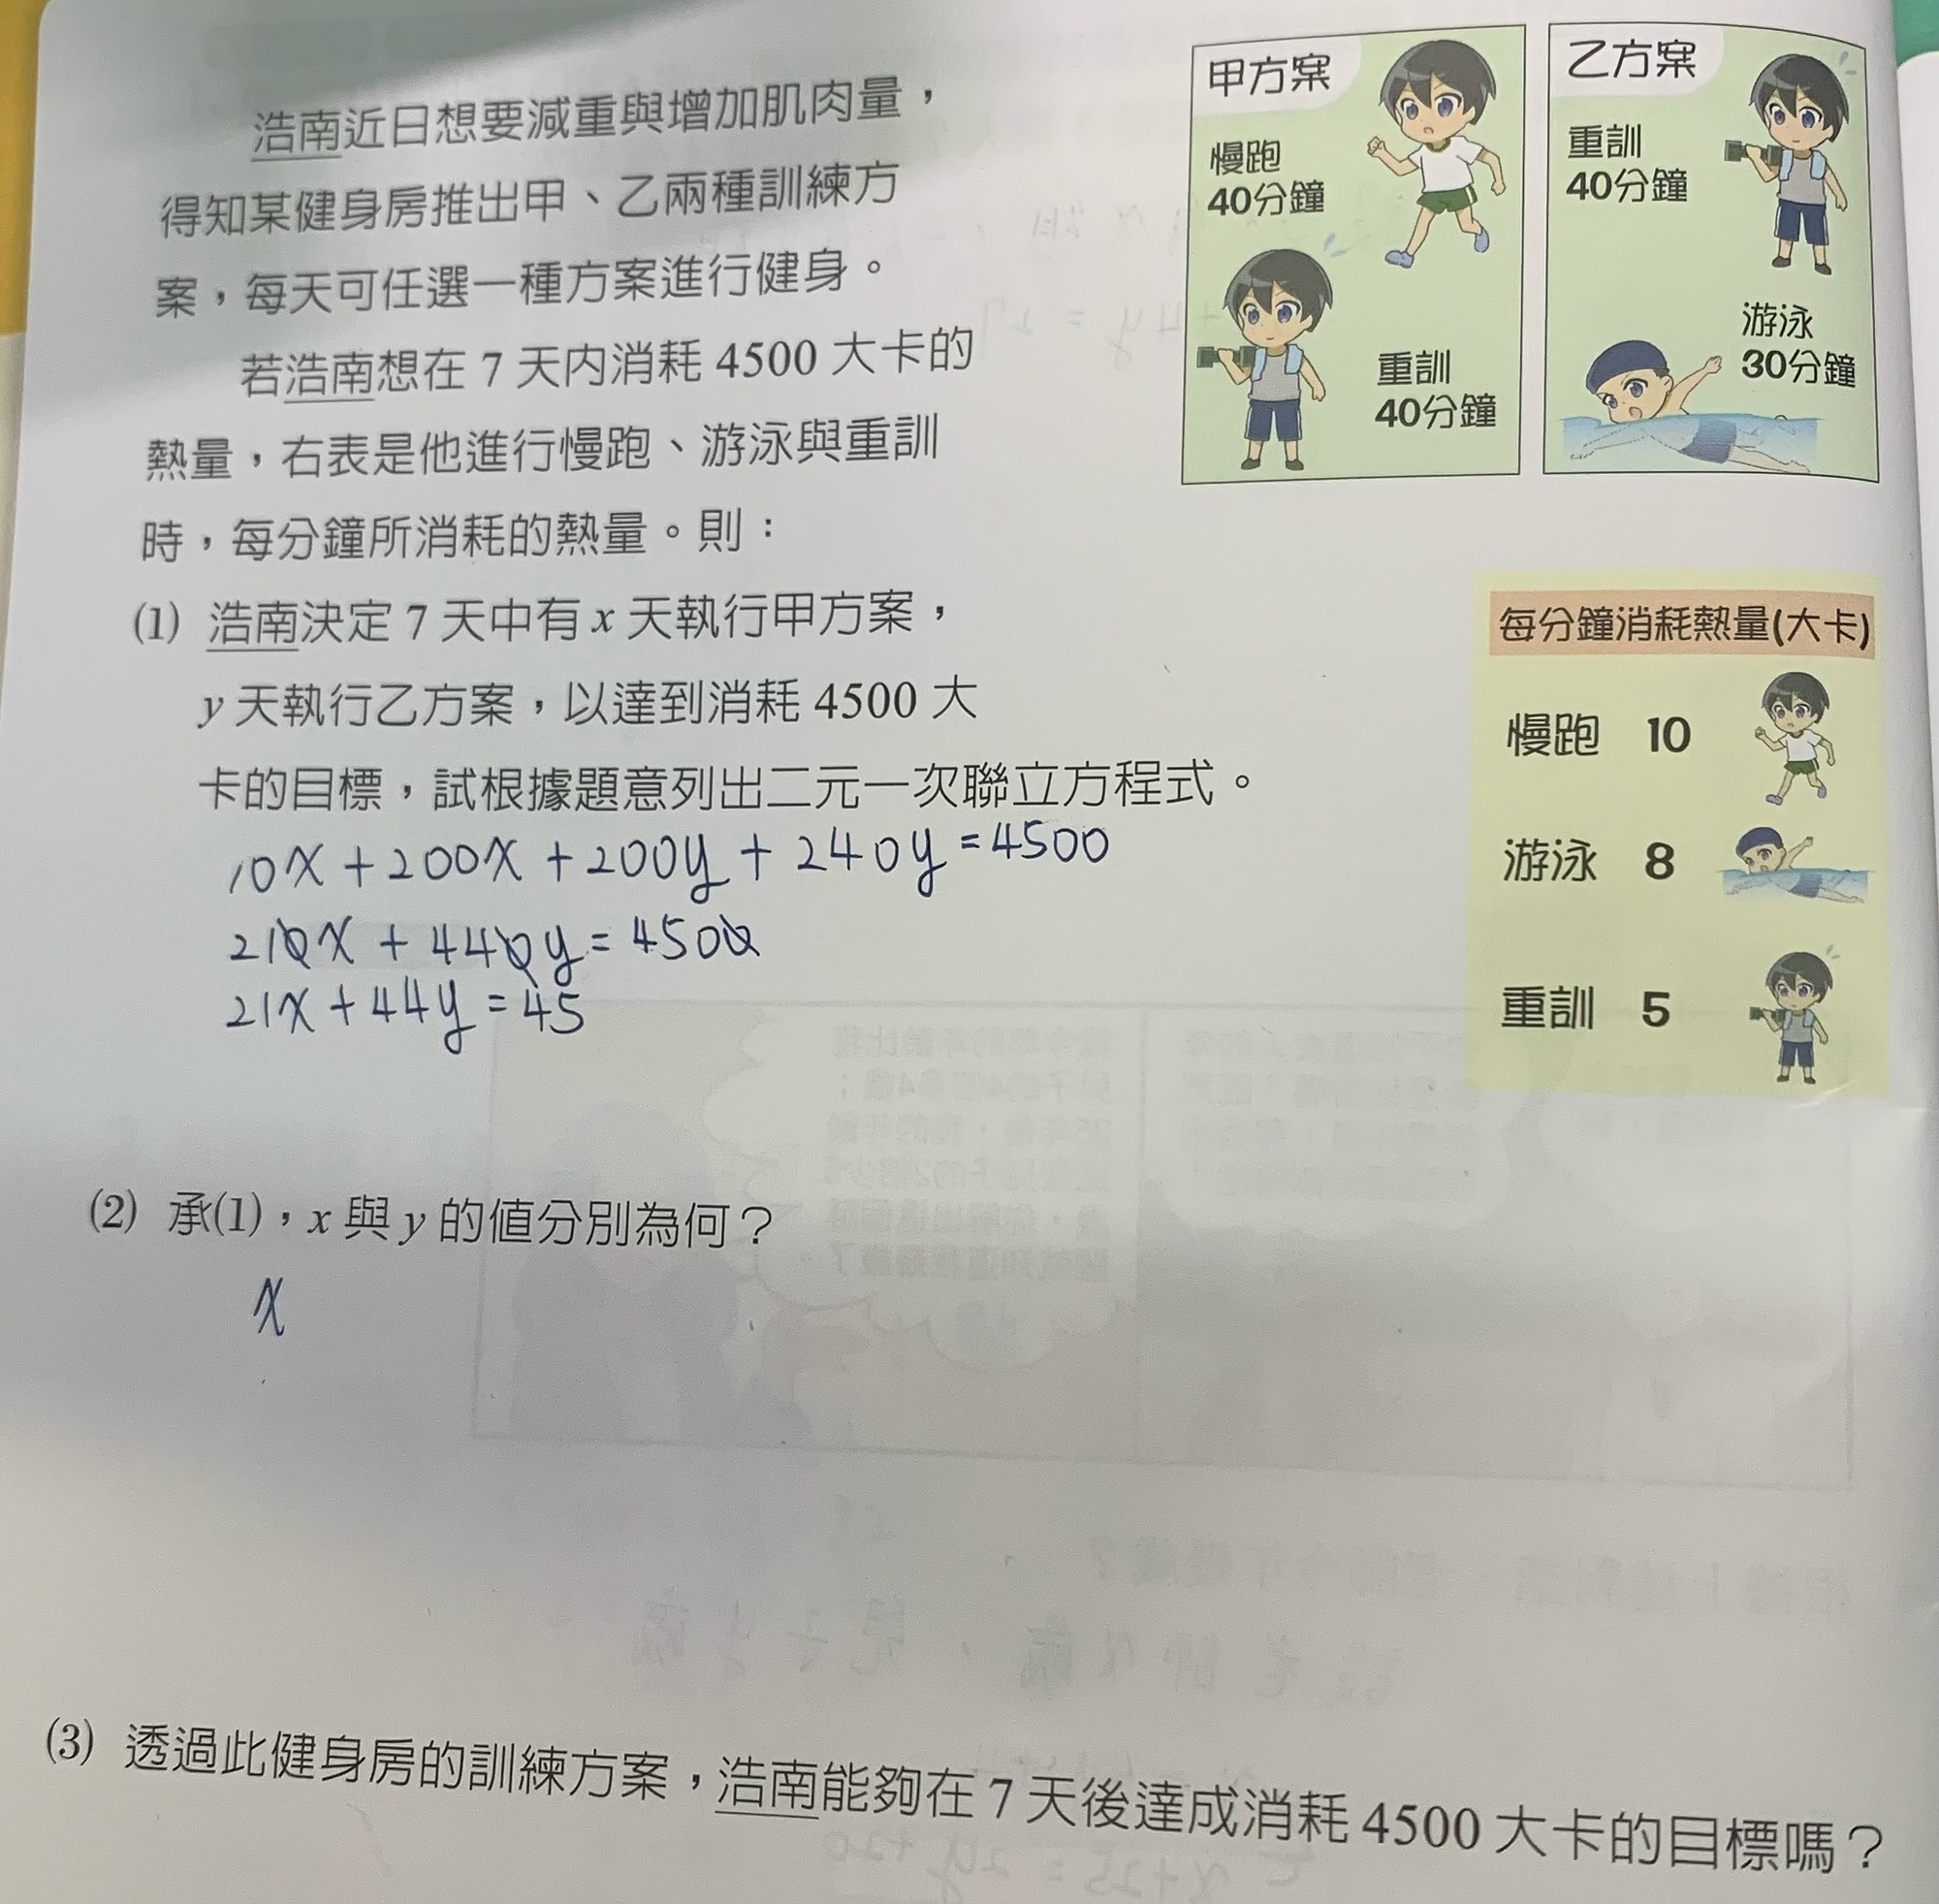 浩南近日想要減重與增加肌肉量，
得知某健身房推出甲、乙兩種訓練方
案，每天可任選一種方案進行健身。
若浩南想在 7 天內消耗 4500 大卡的
熱量，右表是他進行慢跑、游泳與重訓
時，每分鐘所消耗的熱量。則：
甲方案
慢跑
40分鐘
重訓
40分鐘
乙方案
重訓
40分鐘
游泳
30分鐘
(1) 浩南決定 7 天中有 x 天執行甲方案，
y 天執行乙方案，以達到消耗 4500 大
卡的目標，試根據題意列出二元一次聯立方程式。
10x + 200x + 200y + 240y = 4500
210x + 440y = 4500
21x + 44y = 45
每分鐘消耗熱量(大卡)
慢跑 10
游泳 8
重訓 5
(2) 承(1)，x 與 y 的值分別為何？
x
(3) 透過此健身房的訓練方案，浩南能夠在 7 天後達成消耗 4500 大卡的目標嗎？